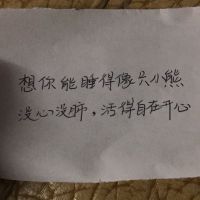 想你能睡得像只小熊
没心没肺，活得自在开心